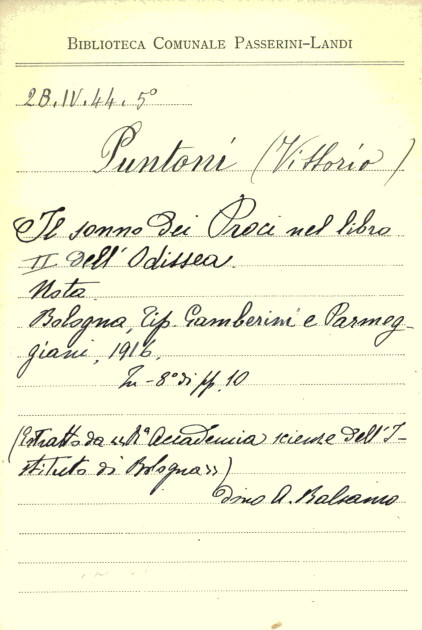 BIBLIOTECA COMUNALE PASSERINI-LANDI
2B.IV.44.5°
Puntoni (Vittorio)
Il sonno dei Proci nel libro
II dell'Odissea.
Nota.
Bologna, Tip. Gamberini e Parmeg-
giani, 1916.
In-8° di pp. 10
(Estratto da «Rª Accademia scienze dell'I-
stituto di Bologna»)
dono A. Balsamo